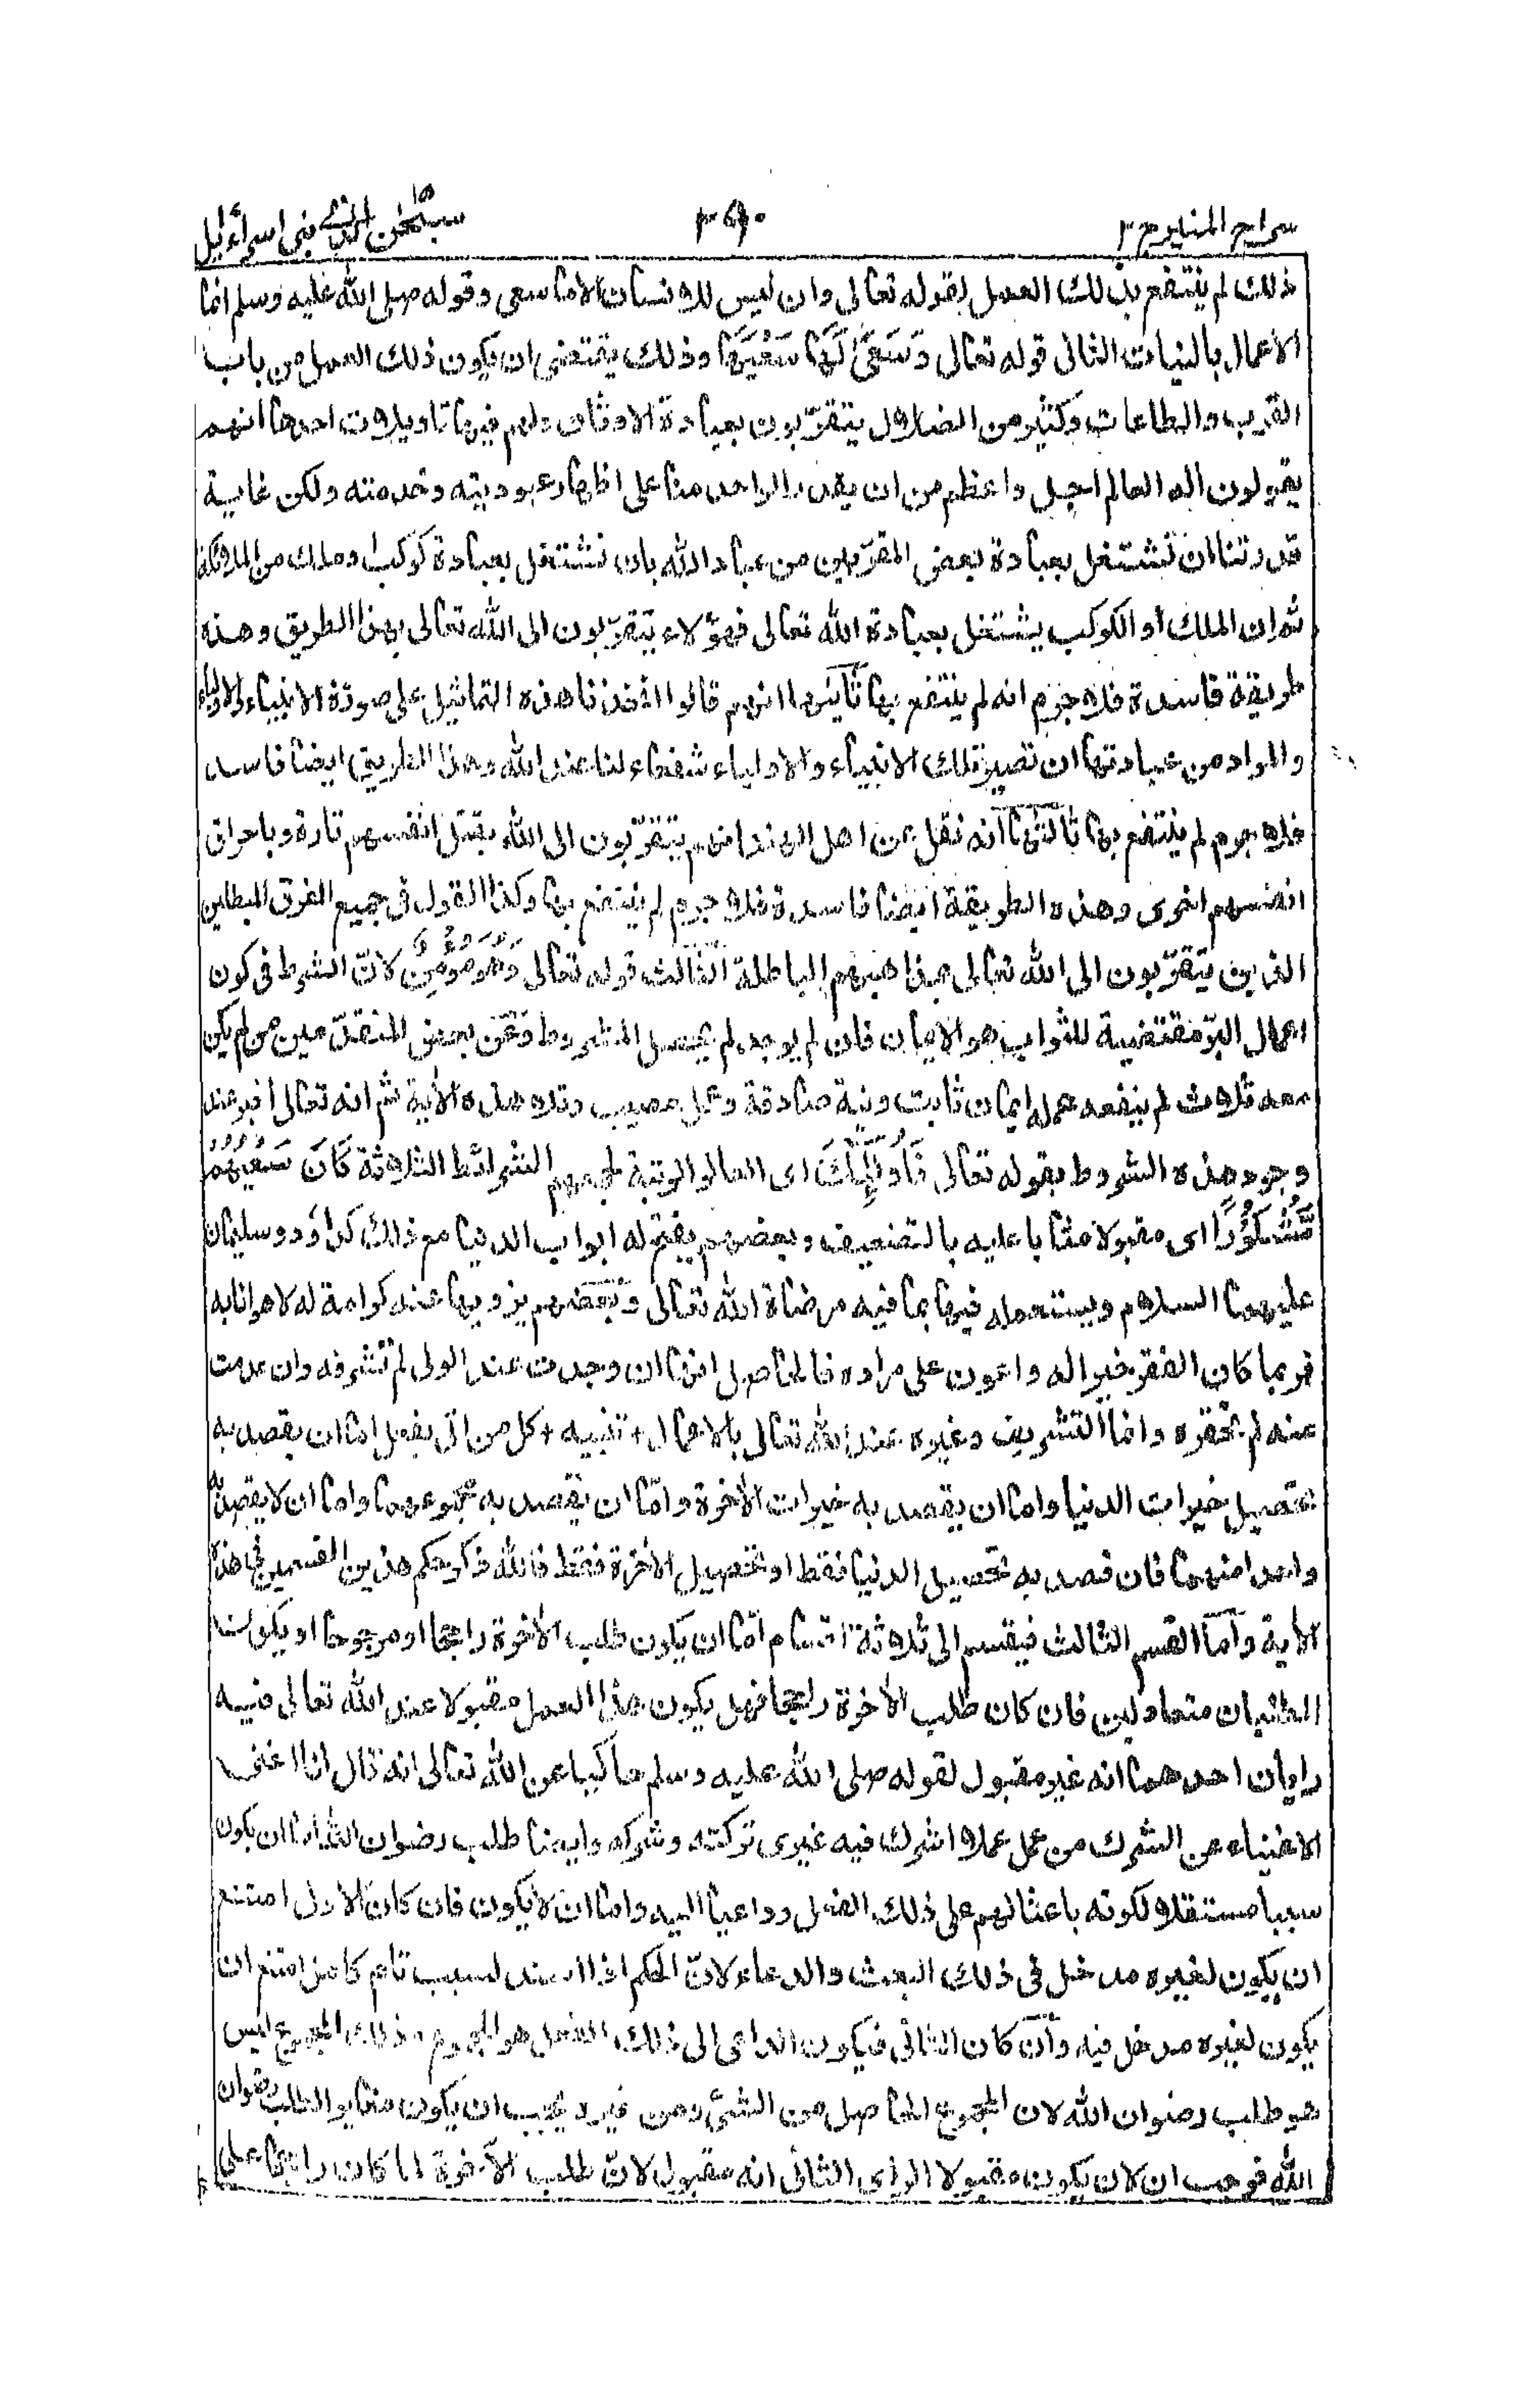 سراج المنير ج ٢
٣٩٠
سبحٰن الذي ١٥ بنى اسرائيل
ذلك لم ينتفع بذلك العمل لقوله تعالى وان ليس للانسان الا ما سعى وقوله صلى الله عليه وسلم انما
الاعمال بالنيات الثانى قوله تعالى وَسَعٰى لَهَا سَعْيَهَا وذلك يقتضى ان يكون ذلك العمل من باب
القرب والطاعات وكثير من الضلال يتقرّبون بعبادة الاوثان ولهم فيها تاويلات احدها انهم
يقولون اله العالم اجل واعظم من ان يقدر الواحد منا على اظهار عبوديته وخدمته ولكن غاية
قدرتنا ان نشتغل بعبادة بعض المقرّبين من عباد الله بان نشتغل بعبادة كوكب او ملك من الملائكة
ثم ان الملك او الكوكب يشتغل بعبادة الله تعالى فهؤلاء يتقرّبون الى الله تعالى بهذا الطريق وهذه
طريقة فاسدة فلا جرم انه لم ينتفع بها ثانيها انهم قالوا اتخذنا هذه التماثيل على صورة الانبياء والاولياء
والمراد من عبادتها ان تصير تلك الانبياء والاولياء شفعاء لنا عند الله وهذا الطريق ايضا فاسد
فلا جرم لم ينتفع بها ثالثها انه نقل عن اهل الهند انهم يتقرّبون الى الله بقتل انفسهم تارة وباحراق
انفسهم اخرى وهذه الطريقة ايضا فاسدة فلا جرم لم ينتفع بها وكذا القول فى جميع الفرق المبطلين
الذين يتقرّبون الى الله تعالى بمذاهبهم الباطلة الثالث قوله تعالى وَهُوَ مُؤْمِنٌ لانّ الشرط فى كون
اعمال البرّ مقتضية للثواب هو الايمان فان لم يوجد لم يحصل المشروط وعن بعض المتقدّمين من لم يكن
معه ثلاث لم ينفعه عمله ايمان ثابت ونية صادقة وعمل مصيب وتلا هذه الاية ثم انه تعالى اخبر عند
وجود هذه الشروط بقوله تعالى فَاُولٰٓئِكَ اى العالو الرتبة لجمعهم الشرائط الثلاثة كَانَ سَعْيُهُمْ
مَّشْكُوْرًا اى مقبولا مثابا عليه بالتضعيف وبعضهم يفتح له ابواب الدنيا مع ذلك كداؤد وسليمان
عليهما السلام ويستعمله فيها بما فيه مرضاة الله تعالى وبعضهم يزويها عنه كرامة له لا هوانا به
فربما كان الفقر خيرا له واعون على مراده فالحاصل انها ان وجدت عند الولى لم تشرفه وان عدمت
عنه لم تحقره وانما التشريف وغيره عند الله تعالى بالاعمال + تنبيه + كل من اتى بفعل اما ان يقصد به
تحصيل خيرات الدنيا واما ان يقصد به خيرات الاخرة واما ان يقصد به مجموعهما واما ان لا يقصد به
واحدا منهما فان قصد به تحصيل الدنيا فقط او تحصيل الاخرة فقط فالله ذكر حكم هذين القسمين فى هذه
الاية واما القسم الثالث فيقسم الى ثلاثة اقسام امّا ان يكون طلب الاخرة راجحا او مرجوحا او يكون
الطلبان متعادلين فان كان طلب الاخرة راجحا فهل يكون هذا العمل مقبولا عند الله تعالى فيه
رايان احدهما انه غير مقبول لقوله صلى الله عليه وسلم حاكيا عن الله تعالى انه قال انا اغنى
الاغنياء عن الشرك من عمل عملا اشرك فيه غيرى تركته وشركه وايضا طلب رضوان الله اما ان يكون
سببا مستقلا لكونه باعثا لهم على ذلك الفعل وداعيا اليه واما ان لا يكون فان كان الاول امتنع
ان يكون لغيره مدخل فى ذلك البعث والدعاء لانّ الحكم اذا اسند لسبب تام كامل امتنع ان
يكون لغيره مدخل فيه وان كان الثانى فيكون الداعى الى ذلك الفعل هو المجموع وذلك المجموع ليس
هو طلب رضوان الله لان المجموع الحاصل من الشئ ومن غيره يجب ان يكون مغايرا لطلب رضوان
الله فوجب ان لان يكون مقبولا الراى الثانى انه مقبول لانّ طلب الآخرة لما كان راجحا على